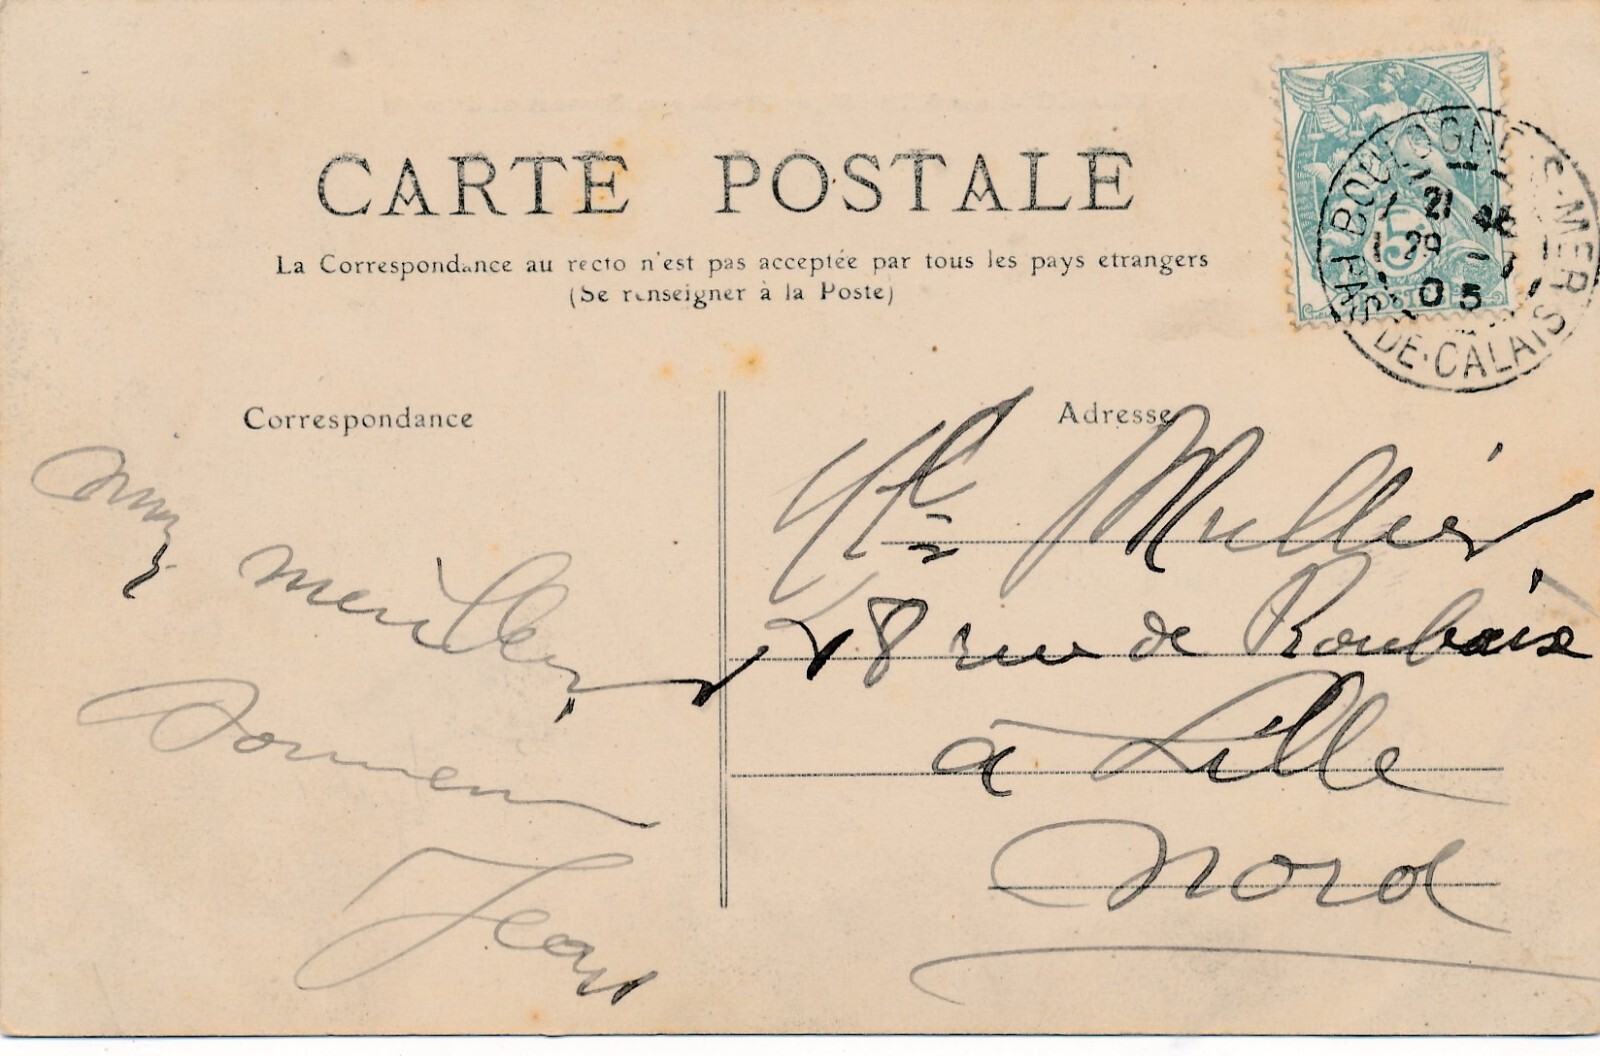 CARTE POSTALE
La Correspondance au recto n'est pas acceptée par tous les pays etrangers
(Se renseigner à la Poste)
BOULOGNE-S-MER
21 45
29 -7
05
PAS-DE-CALAIS
5
POSTES
Correspondance
mes
meilleurs
Souvenirs
Jean
Adresse
Mullier
48 rue de Roubaix
à Lille
Nord